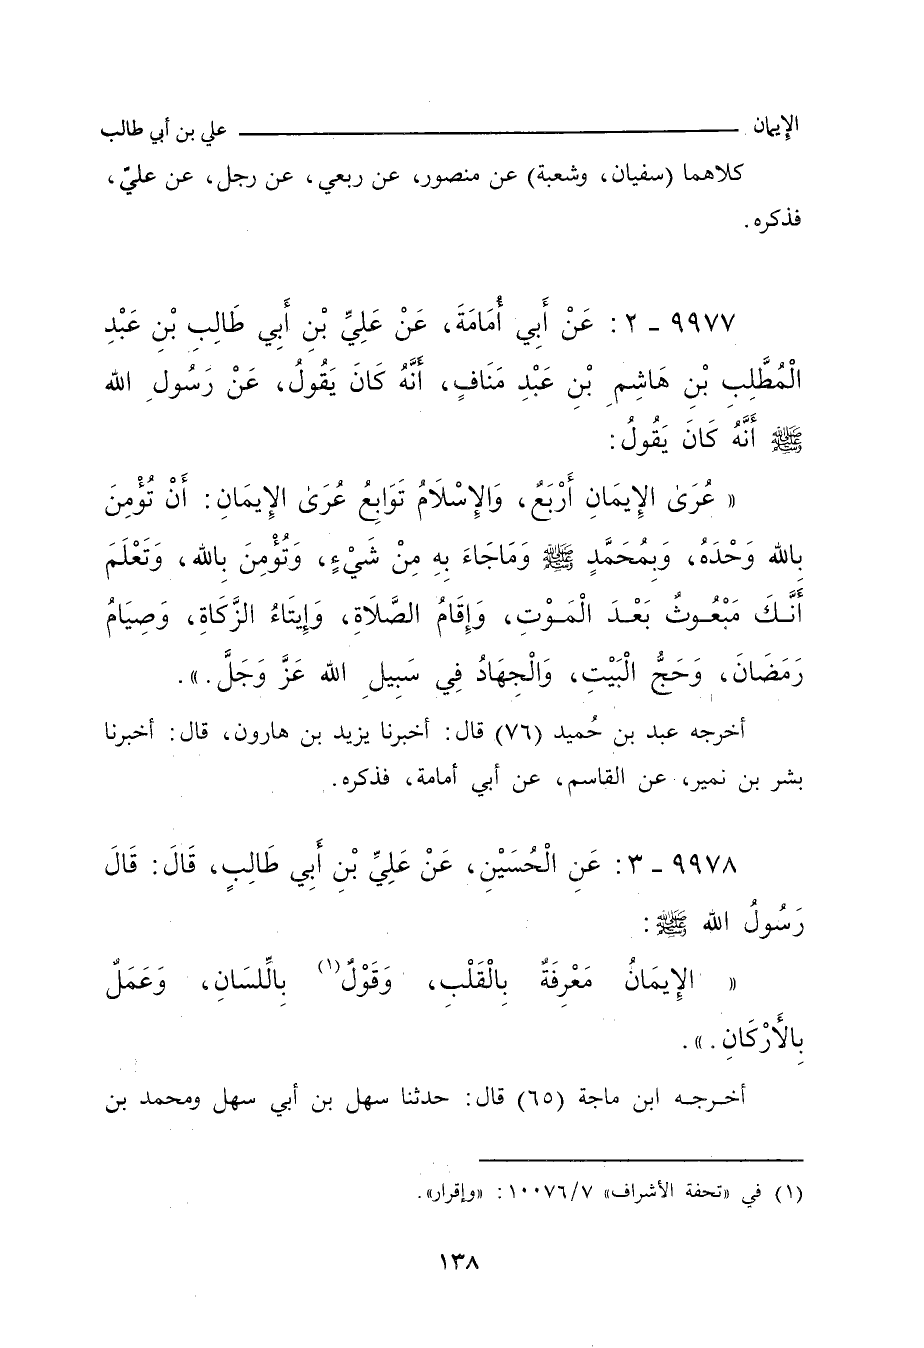 الإيمان ــــــــــ علي بن أبي طالب
كلاهما (سفيان، وشعبة) عن منصور، عن ربعي، عن رجل، عن عليّ،
فذكره.
٩٩٧٧ - ٢: عَنْ أَبِي أُمَامَةَ، عَنْ عَلِيِّ بْنِ أَبِي طَالِبِ بْنِ عَبْدِ
الْمُطَّلِبِ بْنِ هَاشِمِ بْنِ عَبْدِ مَنَافٍ، أَنَّهُ كَانَ يَقُولُ، عَنْ رَسُولِ الله
ﷺ أَنَّهُ كَانَ يَقُولُ:
« عُرَىٰ الإِيمَانِ أَرْبَعٌ، وَالإِسْلَامُ تَوَابِعُ عُرَىٰ الإِيمَانِ: أَنْ تُؤْمِنَ
بِالله وَحْدَهُ، وَبِمُحَمَّدٍ ﷺ وَمَاجَاءَ بِهِ مِنْ شَيْءٍ، وَتُؤْمِنَ بِالله، وَتَعْلَمَ
أَنَّكَ مَبْعُوثٌ بَعْدَ الْمَوْتِ، وَإِقَامُ الصَّلَاةِ، وَإِيتَاءُ الزَّكَاةِ، وَصِيَامُ
رَمَضَانَ، وَحَجُّ الْبَيْتِ، وَالْجِهَادُ فِي سَبِيلِ الله عَزَّ وَجَلَّ.».
أخرجه عبد بن حُميد (٧٦) قال: أخبرنا يزيد بن هارون، قال: أخبرنا
بشر بن نمير، عن القاسم، عن أبي أمامة، فذكره.
٩٩٧٨ - ٣: عَنِ الْحُسَيْنِ، عَنْ عَلِيِّ بْنِ أَبِي طَالِبٍ، قَالَ: قَالَ
رَسُولُ الله ﷺ:
« الإِيمَانُ مَعْرِفَةٌ بِالْقَلْبِ، وَقَوْلٌ(١) بِاللِّسَانِ، وَعَمَلٌ
بِالأَرْكَانِ.».
أخرجه ابن ماجة (٦٥) قال: حدثنا سهل بن أبي سهل ومحمد بن
(١) في «تحفة الأشراف» ١٠٠٧٦/٧: «وإقرار».
١٣٨